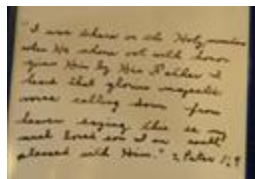 "I was there on the Holy mountain
when He shone out with honor
given Him by His Father I
heard that glorious majestic
voice calling down from
heaven saying this is my
much loved son I am well
pleased with Him." 2 Peter 1: